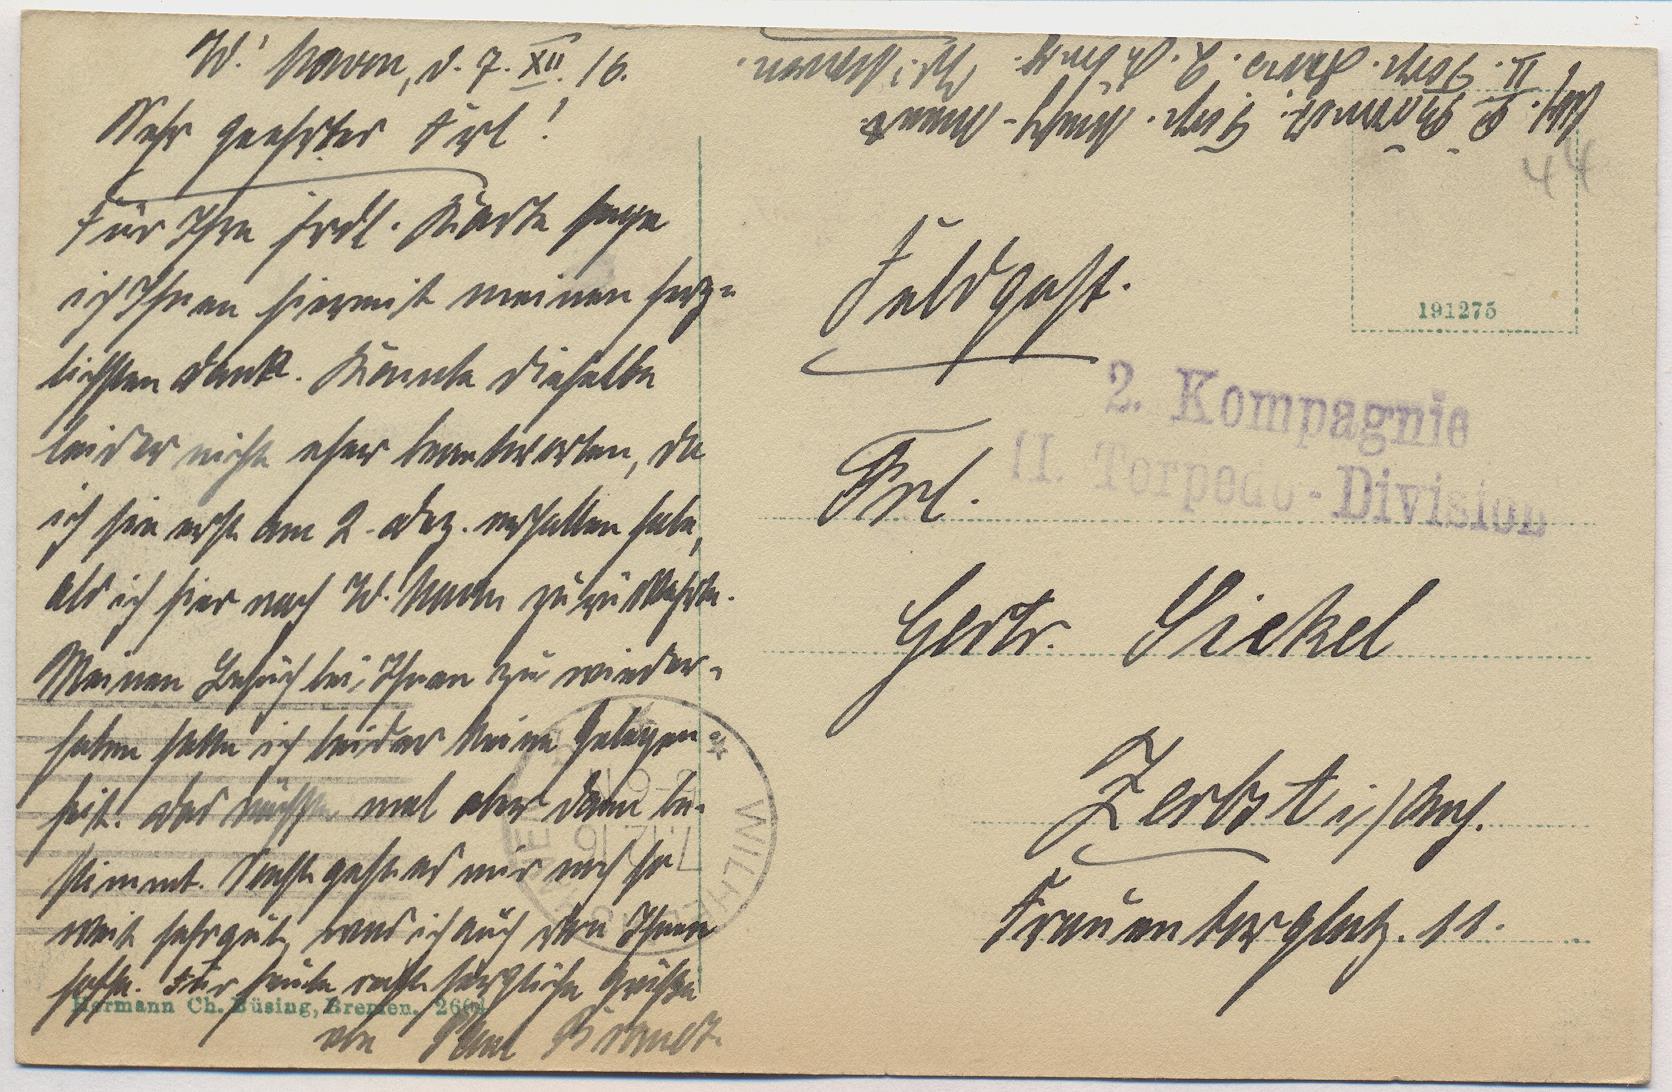 W.'haven, d. 7. XII. 16.
Sehr geehrtes Frl!
Für Ihre frdl. Karte sage
ich Ihnen hiermit meinen herz-
lichsten Dank. Konnte dieselbe
leider nicht eher beantworten, da
ich sie erst am 2. Dez. erhalten habe,
als ich hier nach W. haven zurückkehrte.
Meinen Besuch bei Ihnen zu wieder-
holen hatte ich leider keine Gelegen-
heit. Das nächste mal aber dann be-
stimmt. Sonst geht es mir noch so
weit sehr gut, was ich auch von Ihnen
hoffe. Für heute recht herzliche Grüße
von Paul Brandt.
Hermann Ch. Büsing, Bremen. 266
Abs. P. Brandt. Torp.
II. Torp. Div. 2. Komp. W.'haven.
44
Feldpost.
191275
2. Kompagnie
II. Torpedo-Division
Frl.
Gertr. Sickel
Zerbst i/Anh.
Frauentorplatz. 11.
WILHELMSHAVEN
7.12.16